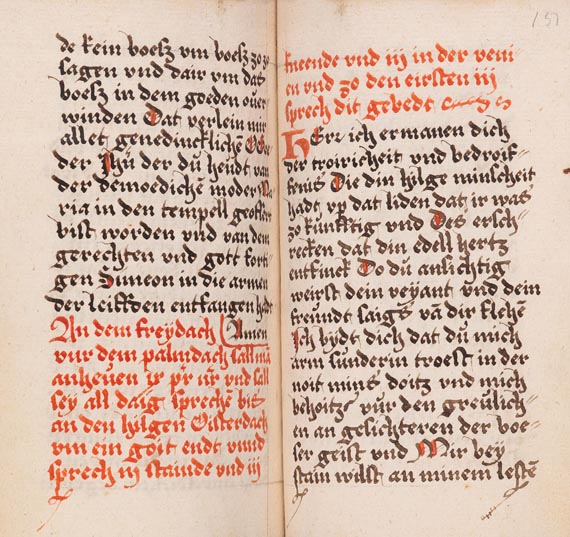 de kein boesz vm boesz zo zo
sagen vnd dair vm dat
boesz in dem goeden ouer
winden Dat verlein mir
allet genedinckliche
der Jhū der dü heudt van
der demoedichē moder Ma
ria in den tempell geoffert
bist worden vnd van dem
gerechten vnd gott forti
gen Simeon in die armen
der leiffden entfangen hadt
Amen
An dem freydach
vur dem palmdach sall mā
anheuen iij pr nr vnd sall
sey all daig sprechē bis
an den hilgen Oisterdach
vm ein goit endt vnnd
sprech iij stainde vnd iij
151
kneende vnd iij in der veni
en vnd zo den eirsten iij
sprech dit gebedt
HErr ich ermanen dich
der troiricheit vnd bedroif-
fenis Die din hilge minscheit
hadt vp dat liden dat ir was
zo kunfftig vnd Des ersch-
recken dat din edell hertz
entfinck Do dü ansichtig
weirst dein veyant vnd dein
freundt saigs vā dir fliehē
Ich bydt dich dat dü mich
arm sunderin troest in der
noit mins doitz vnd mich
behoitze vur den greulich-
en an gesichteren der boe-
ser geist vnd Mir bey
stain willst an minem lestē